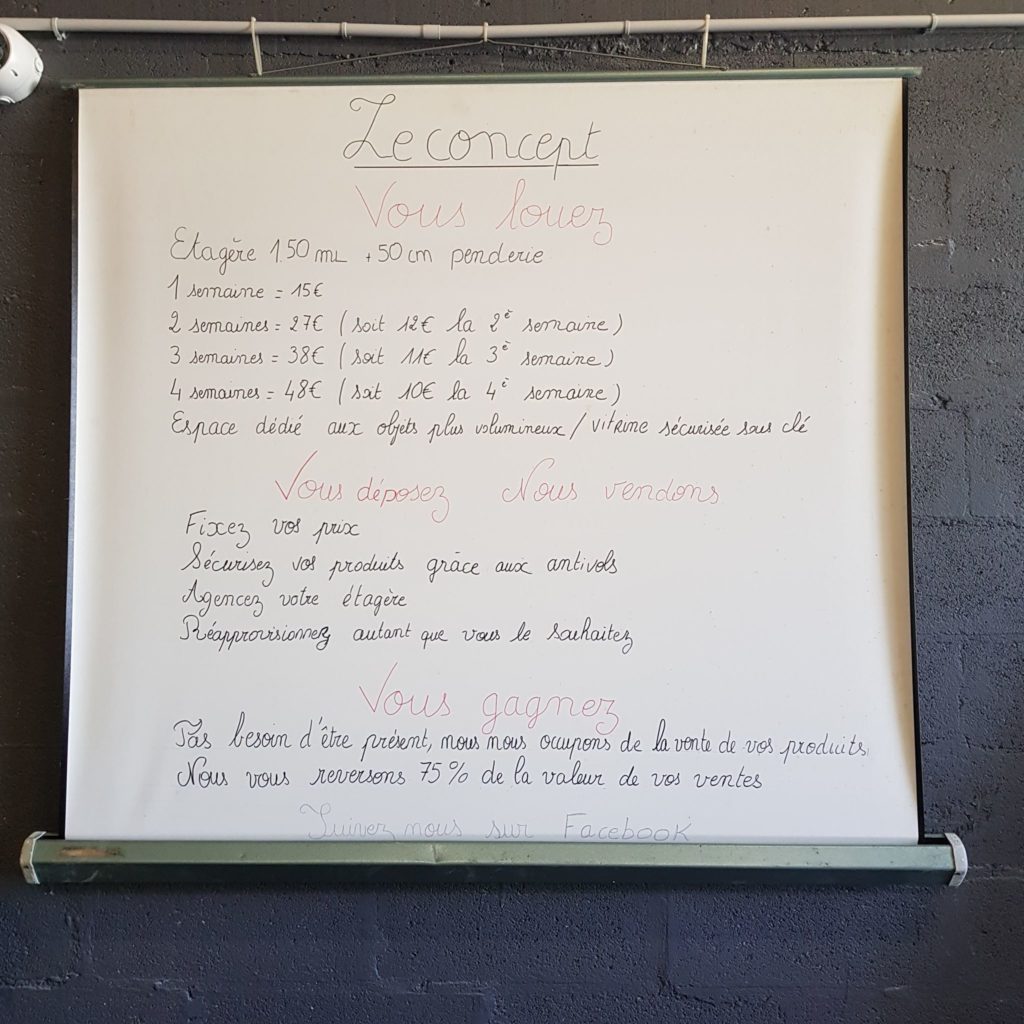 Le concept
Vous louez
Etagère 1.50 mL + 50 cm penderie
1 semaine = 15€
2 semaines = 27€ (soit 12€ la 2è semaine)
3 semaines = 38€ (soit 11€ la 3è semaine)
4 semaines = 48€ (soit 10€ la 4è semaine)
Espace dédié aux objets plus volumineux / vitrine sécurisée sous clé
Vous déposez Nous vendons
Fixez vos prix
Sécurisez vos produits grâce aux antivols
Agencez votre étagère
Réapprovisionnez autant que vous le souhaitez
Vous gagnez
Pas besoin d'être présent, nous nous occupons de la vente de vos produits
Nous vous reversons 75% de la valeur de vos ventes
Suivez nous sur Facebook